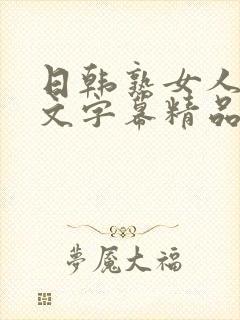 日韩熟女人
文字幕精品
夢魘大福